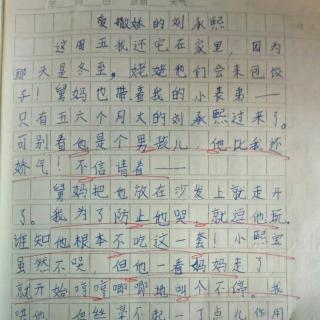 年 月 日 星期 天气
爱撒娇的刘承熙
这周五我还宅在家里，因为
那天是冬至。姥姥他们会来包饺
子！舅妈也带着我的小表弟——
只有五六个月大的刘承熙过来了。
可别看他是个男孩儿，他比我还
娇气！不信请看——
舅妈把他放在沙发上就走开
了。我为了防止他哭，就逗他玩。
谁知他根本不吃这一套！小熙宝
虽然不哭，但他一看妈妈走了
就开始哼哼唧唧地叫个不停。我
哄他，但丝毫不起一了点儿作用